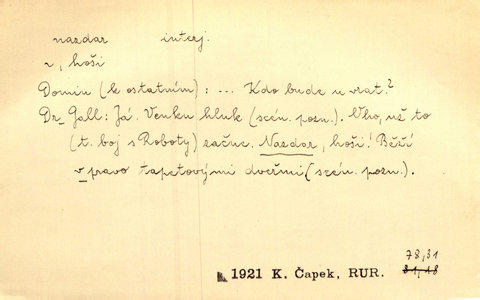 nazdar interj.
n, hoši
Domin (k ostatním): ... Kdo bude u vrat?
Dr. Gall: Já. Venku hluk (scén. pozn.). Oho, už to
(t. boj s Roboty) začne. Nazdar, hoši! Běží
v pravo tapetovými dveřmi (scén. pozn.).
78,31
1921 K. Čapek, RUR. 81,18